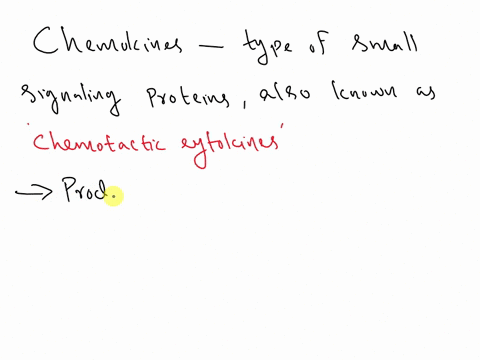 Chemokines — type of small
signaling proteins, also known as
'Chemotactic cytokines'
→ Prod.